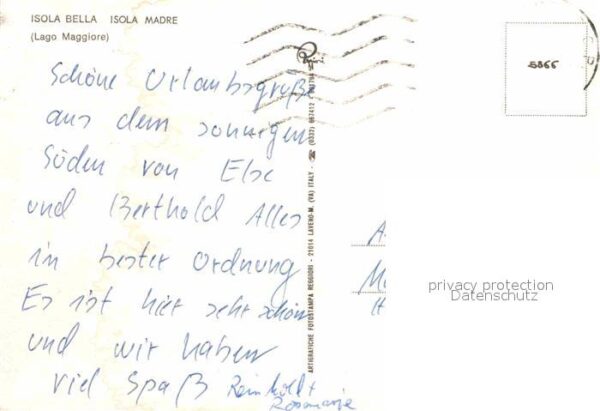 ISOLA BELLA ISOLA MADRE
(Lago Maggiore)
Schöne Urlaubsgrüße
aus dem sonnigen
Süden von Else
und Berthold Alles
in bester Ordnung
Es ist hier sehr schön
und wir haben
viel Spaß Reinhold +
Rosmarie
ARTIGRAFICHE FOTOSTAMPA REGGIORI - 21014 LAVENO-M. (VA) ITALY -
5866
privacy protection
Datenschutz